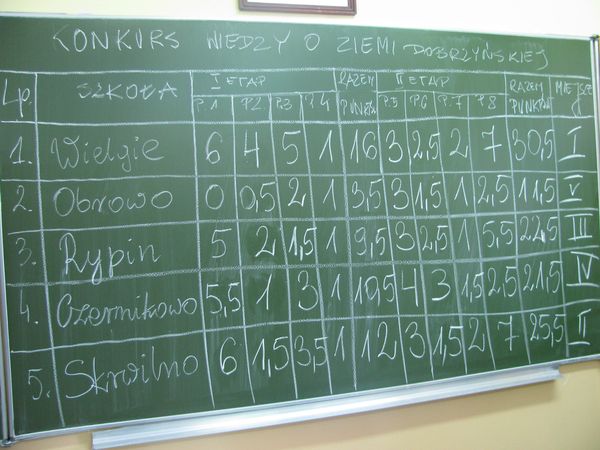 KONKURS WIEDZY O ZIEMI DOBRZYŃSKIEJ
Lp. SZKOŁA I ETAP RAZEM II ETAP RAZEM MIEJSCE
P.1 P.2 P.3 P.4 PUNKTÓW P.5 P.6 P.7 P.8 PUNKTÓW
1. Wielgie 6 4 5 1 16 3 2,5 2 7 30,5 I
2. Obrowo 0 0,5 2 1 3,5 3 1,5 1 2,5 11,5 V
3. Rypin 5 2 1,5 1 9,5 3 2,5 1 5,5 22,5 III
4. Czernikowo 5,5 1 3 1 10,5 4 3 1,5 2,5 21,5 IV
5. Skrwilno 6 1,5 3,5 1 12 3 1,5 2 7 25,5 II